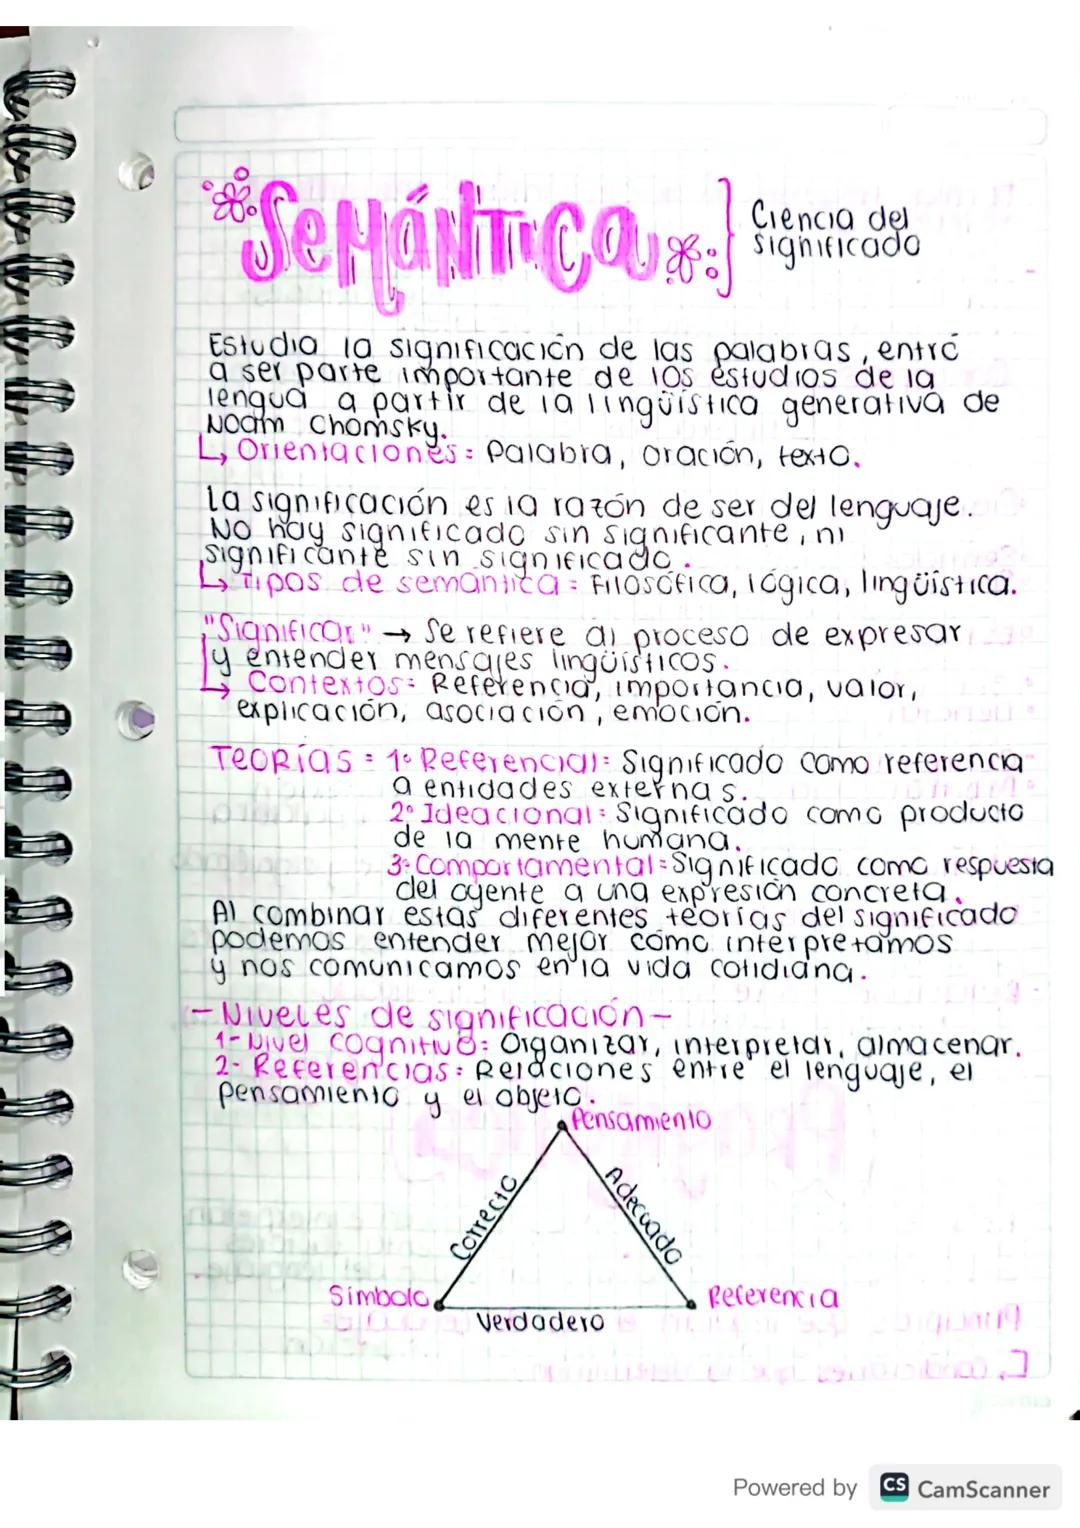 SEMÁNTICA } Ciencia del
significado
Estudia la significación de las palabras, entró
a ser parte importante de los estudios de la
lengua a partir de la lingüística generativa de
Noam Chomsky.
↳ Orientaciones: Palabra, oración, texto.
La significación es la razón de ser del lenguaje.
No hay significado sin significante, ni
significante sin significado.
↳ Tipos de semántica: Filosófica, lógica, lingüística.
"Significar" → Se refiere al proceso de expresar
y entender mensajes lingüísticos.
↳ Contextos: Referencia, importancia, valor,
explicación, asociación, emoción.
Teorías: 1. Referencial: Significado como referencia
a entidades externas.
2. Ideacional: Significado como producto
de la mente humana.
3. Comportamental: Significado como respuesta
del oyente a una expresión concreta.
Al combinar estas diferentes teorías del significado
podemos entender mejor cómo interpretamos
y nos comunicamos en la vida cotidiana.
- Niveles de significación -
1- Nivel cognitivo: Organizar, interpretar, almacenar.
2- Referencias: Relaciones entre el lenguaje, el
pensamiento y el objeto.
Pensamiento
Correcto
Adecuado
Símbolo
Referencia
Verdadero
Powered by CS CamScanner